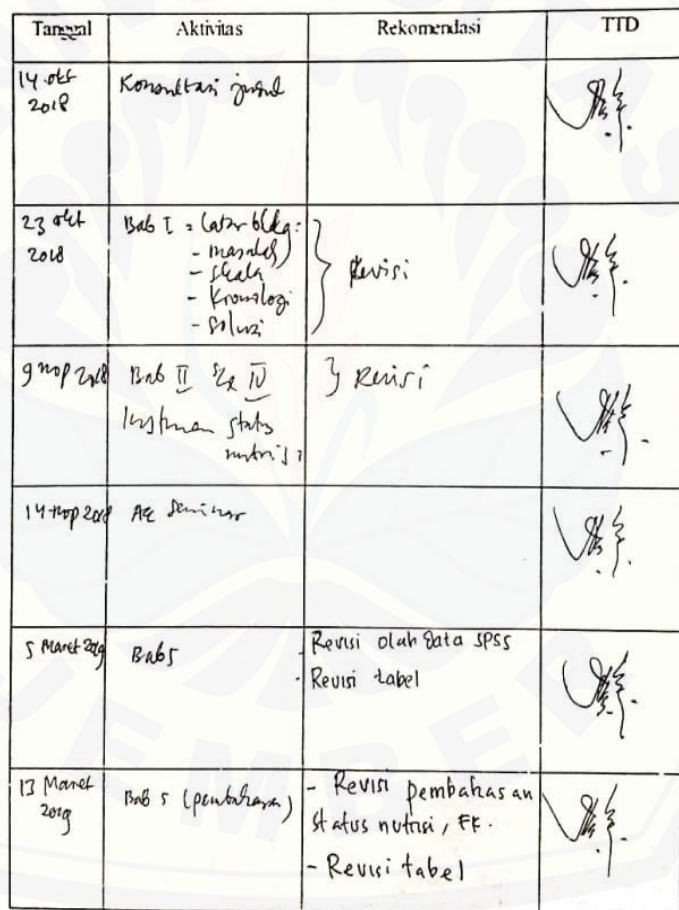 Tanggal Aktivitas Rekomendasi TTD
14 okt Konsultasi judul
2018
23 okt Bab I = latar blkg:
2018 - masalah
- skala
- kronologi
- solusi
} Revisi
9 nop 2018 Bab II s/d IV } Revisi
Instrumen status
nutrisi ?
14 nop 2018 Acc Seminar
5 Maret 2019 Bab 5
- Revisi olah data SPSS
- Revisi tabel
13 Maret Bab 5 (pembahasan)
2019
- Revisi pembahasan
status nutrisi, FK.
- Revisi tabel
JEMBER